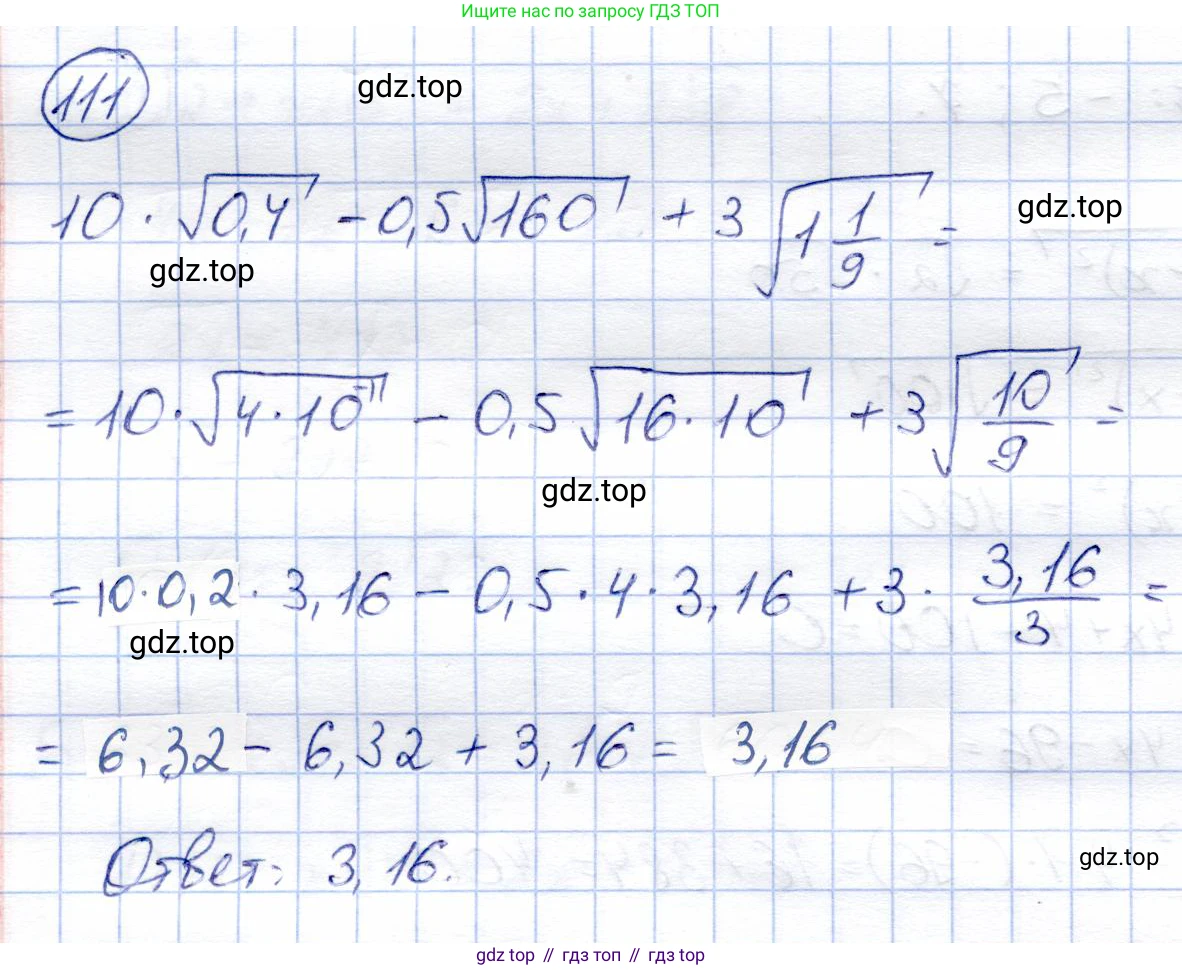 Ищите нас по запросу ГДЗ ТОП
111
gdz.top
10 · √0,4 - 0,5√160 + 3√1 1/9 =
gdz.top
gdz.top
= 10 · √4 · 10⁻¹ - 0,5√16 · 10 + 3√10/9 =
gdz.top
= 10 · 0,2 · 3,16 - 0,5 · 4 · 3,16 + 3 · 3,16/3 =
gdz.top
= 6,32 - 6,32 + 3,16 = 3,16
Ответ: 3,16.
gdz.top
gdz.top // гдз топ // гдз top